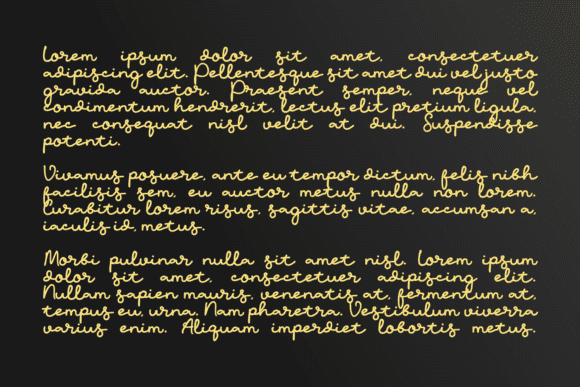 Lorem ipsum dolor sit amet, consectetuer
adipiscing elit. Pellentesque sit amet dui vel justo
gravida auctor. Praesent semper, neque vel
condimentum hendrerit, lectus elit pretium ligula,
nec consequat nisl velit at dui. Suspendisse
potenti.
Vivamus posuere, ante eu tempor dictum, felis nibh
facilisis sem, eu auctor metus nulla non lorem.
Curabitur lorem risus, sagittis vitae, accumsan a,
iaculis id, metus.
Morbi pulvinar nulla sit amet nisl. Lorem ipsum
dolor sit amet, consectetuer adipiscing elit.
Nullam sapien mauris, venenatis at, fermentum at,
tempus eu, urna. Nam pharetra. Vestibulum viverra
varius enim. Aliquam imperdiet lobortis metus.